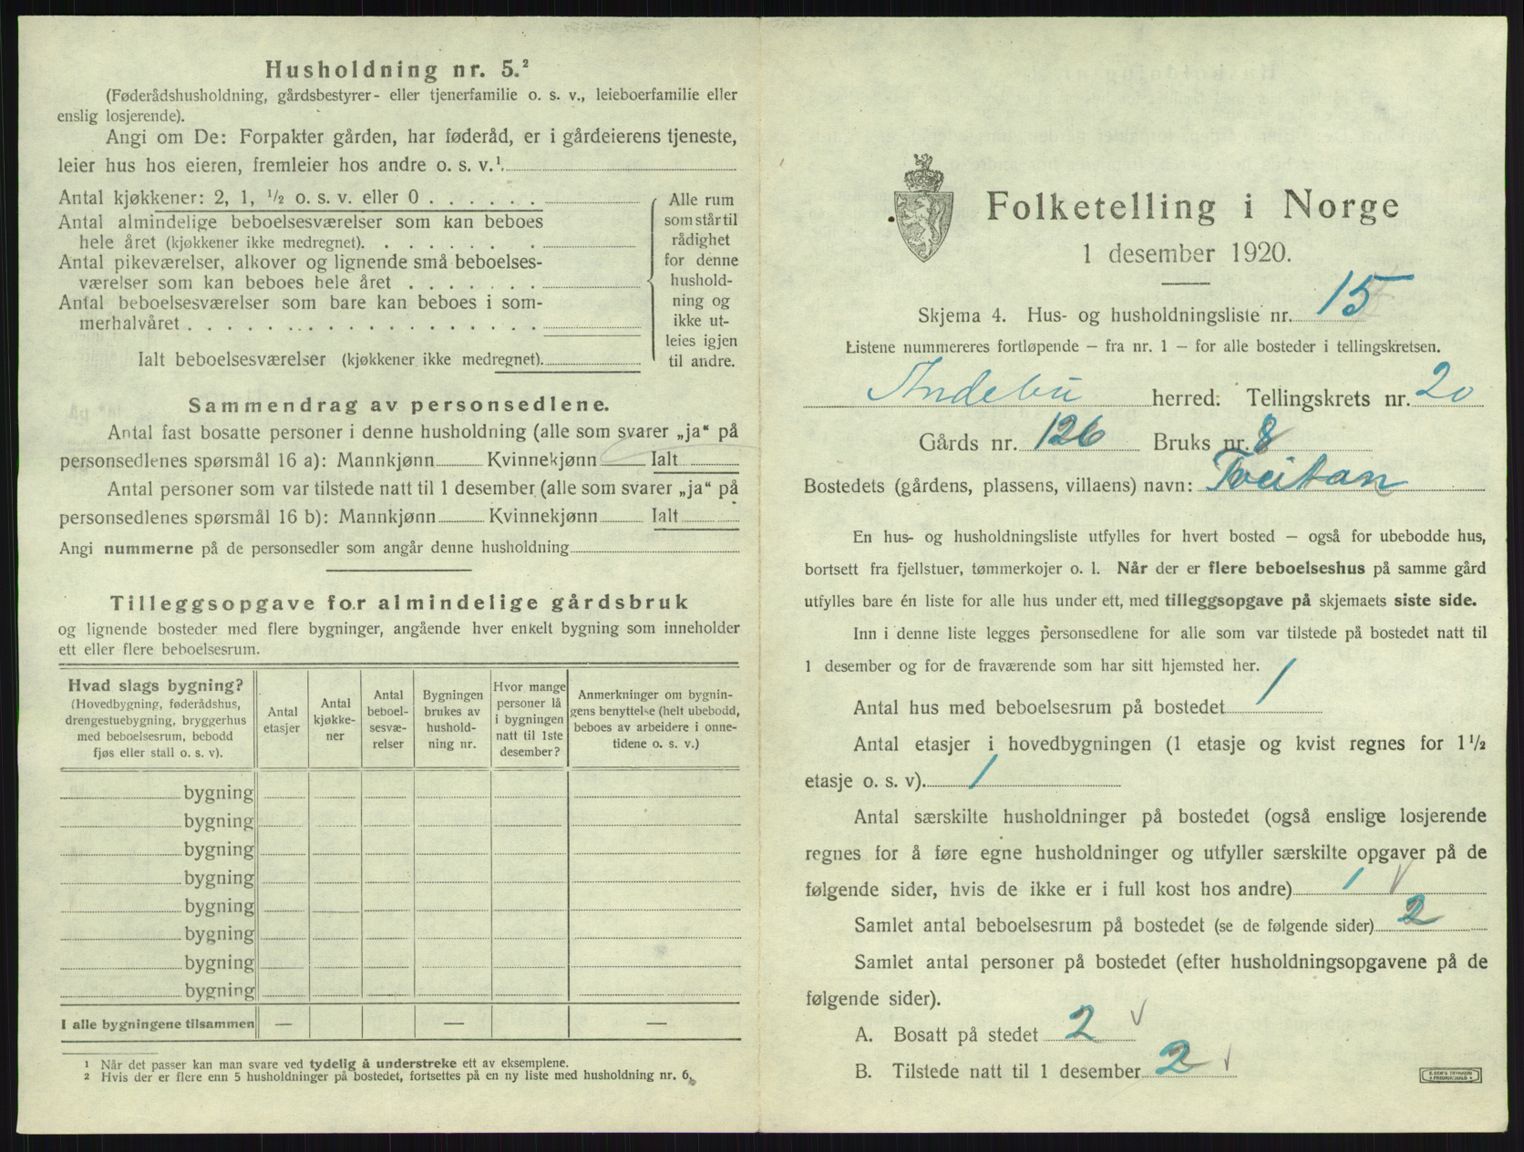 Husholdning nr. 5.²
(Føderådshusholdning, gårdsbestyrer- eller tjenerfamilie o. s. v., leieboerfamilie eller
enslig losjerende).
Angi om De: Forpakter gården, har føderåd, er i gårdeierens tjeneste,
leier hus hos eieren, fremleier hos andre o. s. v.¹
Antal kjøkkener: 2, 1, ½ o. s. v. eller 0
Antal almindelige beboelsesværelser som kan beboes
hele året (kjøkkener ikke medregnet).
Antal pikeværelser, alkover og lignende små beboelses-
værelser som kan beboes hele året
Antal beboelsesværelser som bare kan beboes i som-
merhalvåret
Ialt beboelsesværelser (kjøkkener ikke medregnet).
Alle rum
som står til
rådighet
for denne
hushold-
ning og
ikke ut-
leies igjen
til andre.
Sammendrag av personsedlene.
Antal fast bosatte personer i denne husholdning (alle som svarer „ja“ på
personsedlenes spørsmål 16 a): Mannkjønn Kvinnekjønn Ialt
Antal personer som var tilstede natt til 1 desember (alle som svarer „ja“ på
personsedlenes spørsmål 16 b): Mannkjønn Kvinnekjønn Ialt
Angi nummerne på de personsedler som angår denne husholdning
Tilleggsopgave for almindelige gårdsbruk
og lignende bosteder med flere bygninger, angående hver enkelt bygning som inneholder
ett eller flere beboelsesrum.
Hvad slags bygning?
(Hovedbygning, føderådshus,
drengestuebygning, bryggerhus
med beboelsesrum, bebodd
fjøs eller stall o. s. v).
Antal
etasjer
Antal
kjøkke-
ner
Antal
beboel-
sesvæ-
relser
Bygningen
brukes av
hushold-
ning nr.
Hvor mange
personer lå
i bygningen
natt til 1ste
desember?
Anmerkninger om bygnin-
gens benyttelse (helt ubebodd,
beboes av arbeidere i onne-
tidene o. s. v.)
bygning
bygning
bygning
bygning
bygning
bygning
bygning
bygning
I alle bygningene tilsammen — — —
¹ Når det passer kan man svare ved tydelig å understreke ett av eksemplene.
² Hvis der er flere enn 5 husholdninger på bostedet, fortsettes på en ny liste med husholdning nr. 6.
Folketelling i Norge
1 desember 1920.
Skjema 4. Hus- og husholdningsliste nr. 15
Listene nummereres fortløpende – fra nr. 1 – for alle bosteder i tellingskretsen.
Andebu herred. Tellingskrets nr. 20
Gårds nr. 126 Bruks nr. 8
Bostedets (gårdens, plassens, villaens) navn: Tveitan
En hus- og husholdningsliste utfylles for hvert bosted – også for ubebodde hus,
bortsett fra fjellstuer, tømmerkojer o. l. Når der er flere beboelseshus på samme gård
utfylles bare én liste for alle hus under ett, med tilleggsopgave på skjemaets siste side.
Inn i denne liste legges personsedlene for alle som var tilstede på bostedet natt til
1 desember og for de fraværende som har sitt hjemsted her.
Antal hus med beboelsesrum på bostedet 1
Antal etasjer i hovedbygningen (1 etasje og kvist regnes for 1½
etasje o. s. v). 1
Antal særskilte husholdninger på bostedet (også enslige losjerende
regnes for å føre egne husholdninger og utfyller særskilte opgaver på de
følgende sider, hvis de ikke er i full kost hos andre) 1
Samlet antal beboelsesrum på bostedet (se de følgende sider) 2
Samlet antal personer på bostedet (efter husholdningsopgavene på de
følgende sider).
A. Bosatt på stedet 2
B. Tilstede natt til 1 desember 2